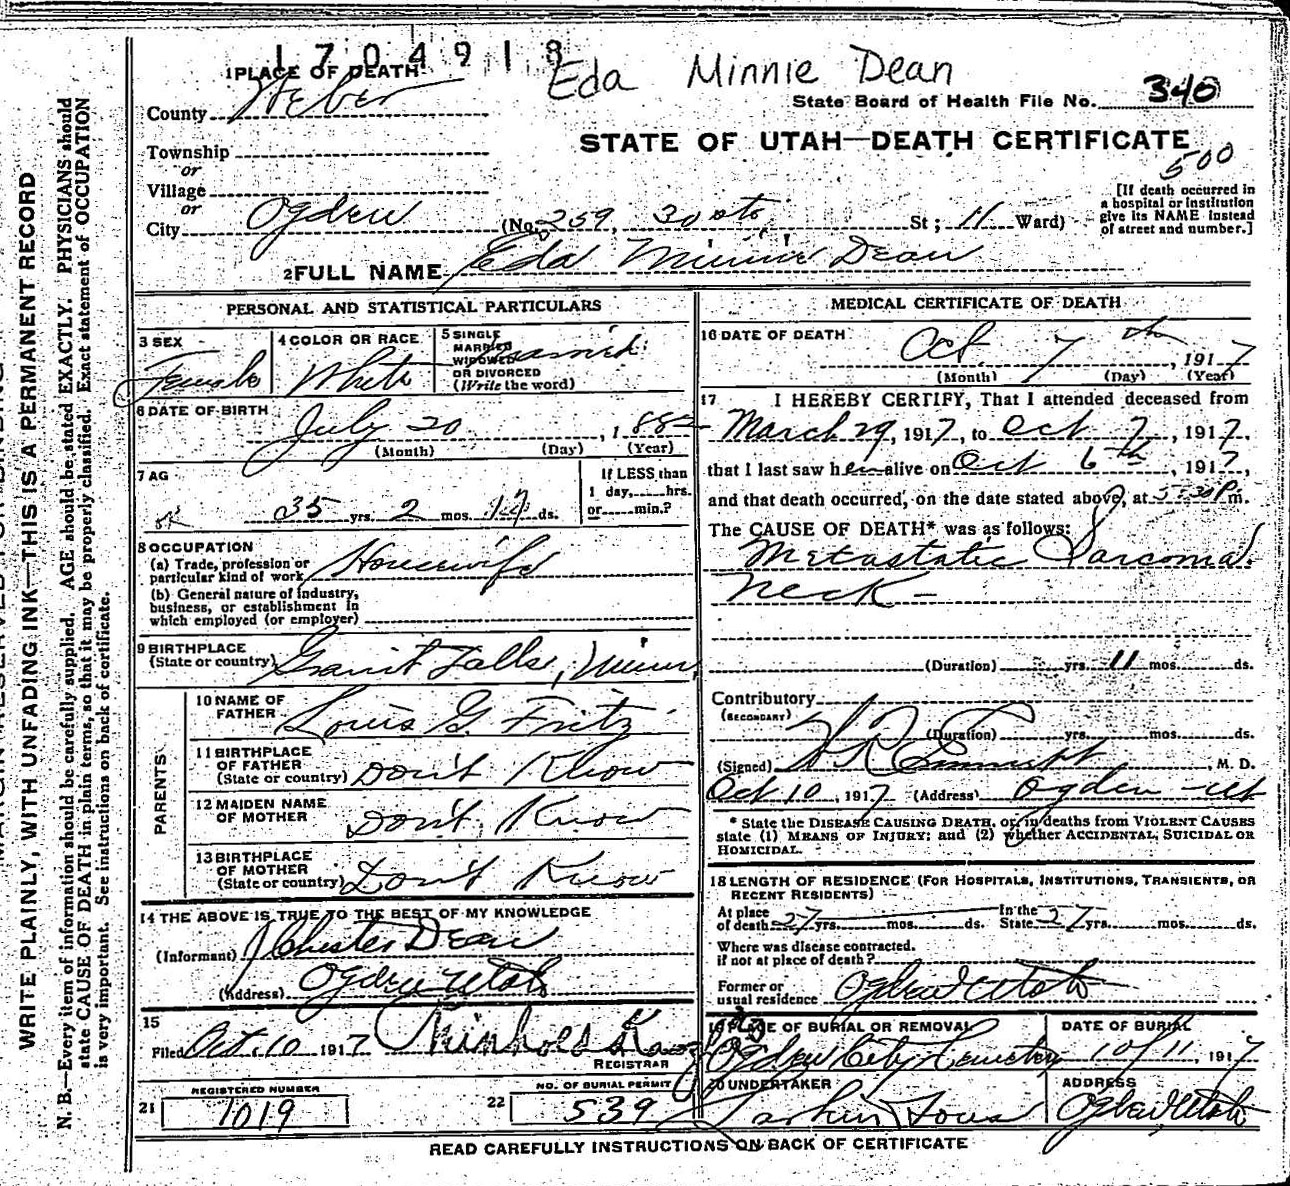 1704918
Eda Minnie Dean
1 PLACE OF DEATH
County Weber
State Board of Health File No. 340
STATE OF UTAH—DEATH CERTIFICATE
500
Township
or
Village
or
City Ogden (No. 259, 30 St; 11 Ward)
[If death occurred in
a hospital or institution
give its NAME instead
of street and number.]
2 FULL NAME Eda Minnie Dean
PERSONAL AND STATISTICAL PARTICULARS
3 SEX
Female
4 COLOR OR RACE
White
5 SINGLE
MARRIED
WIDOWED
OR DIVORCED
(Write the word)
Married
6 DATE OF BIRTH
July 20, 1882
(Month) (Day) (Year)
7 AG
35 yrs. 2 mos. 17 ds.
If LESS than
1 day,......hrs.
or......min.?
8 OCCUPATION
(a) Trade, profession or
particular kind of work Housewife
(b) General nature of industry,
business, or establishment in
which employed (or employer)
9 BIRTHPLACE
(State or country) Granit Falls, Minn
PARENTS
10 NAME OF
FATHER Louis G. Fritz
11 BIRTHPLACE
OF FATHER
(State or country) Don't Know
12 MAIDEN NAME
OF MOTHER Don't Know
13 BIRTHPLACE
OF MOTHER
(State or country) Don't Know
14 THE ABOVE IS TRUE TO THE BEST OF MY KNOWLEDGE
(Informant) Chester Dean
(Address) Ogden Utah
15
Filed Oct. 10 1917
REGISTRAR
REGISTERED NUMBER
21 1019
NO. OF BURIAL PERMIT
22 539
MEDICAL CERTIFICATE OF DEATH
16 DATE OF DEATH
Oct. 7th, 1917
(Month) (Day) (Year)
17 I HEREBY CERTIFY, That I attended deceased from
March 29, 1917, to Oct 7, 1917,
that I last saw her alive on Oct 6th, 1917,
and that death occurred, on the date stated above, at 5:30 P.m.
The CAUSE OF DEATH* was as follows:
Metastatic Sarcoma.
Neck—
(Duration) yrs. 11 mos. ds.
Contributory
(SECONDARY)
(Duration) yrs. mos. ds.
(Signed) M. D.
Oct 10, 1917 (Address) Ogden Ut
* State the DISEASE CAUSING DEATH, or, in deaths from VIOLENT CAUSES
state (1) MEANS OF INJURY; and (2) whether ACCIDENTAL, SUICIDAL OR
HOMICIDAL.
18 LENGTH OF RESIDENCE (FOR HOSPITALS, INSTITUTIONS, TRANSIENTS, OR
RECENT RESIDENTS)
At place
of death 27 yrs. mos. ds. In the
State 27 yrs. mos. ds.
Where was disease contracted.
if not at place of death?
Former or
usual residence Ogden Utah
19 PLACE OF BURIAL OR REMOVAL
Ogden City Cemetery
DATE OF BURIAL
10/11, 1917
20 UNDERTAKER
Larkin Sons
ADDRESS
Ogden Utah
READ CAREFULLY INSTRUCTIONS ON BACK OF CERTIFICATE
WRITE PLAINLY, WITH UNFADING INK—THIS IS A PERMANENT RECORD
N. B.—Every item of information should be carefully supplied. AGE should be stated EXACTLY. PHYSICIANS should
state CAUSE OF DEATH in plain terms, so that it may be properly classified. Exact statement of OCCUPATION
is very important. See instructions on back of certificate.